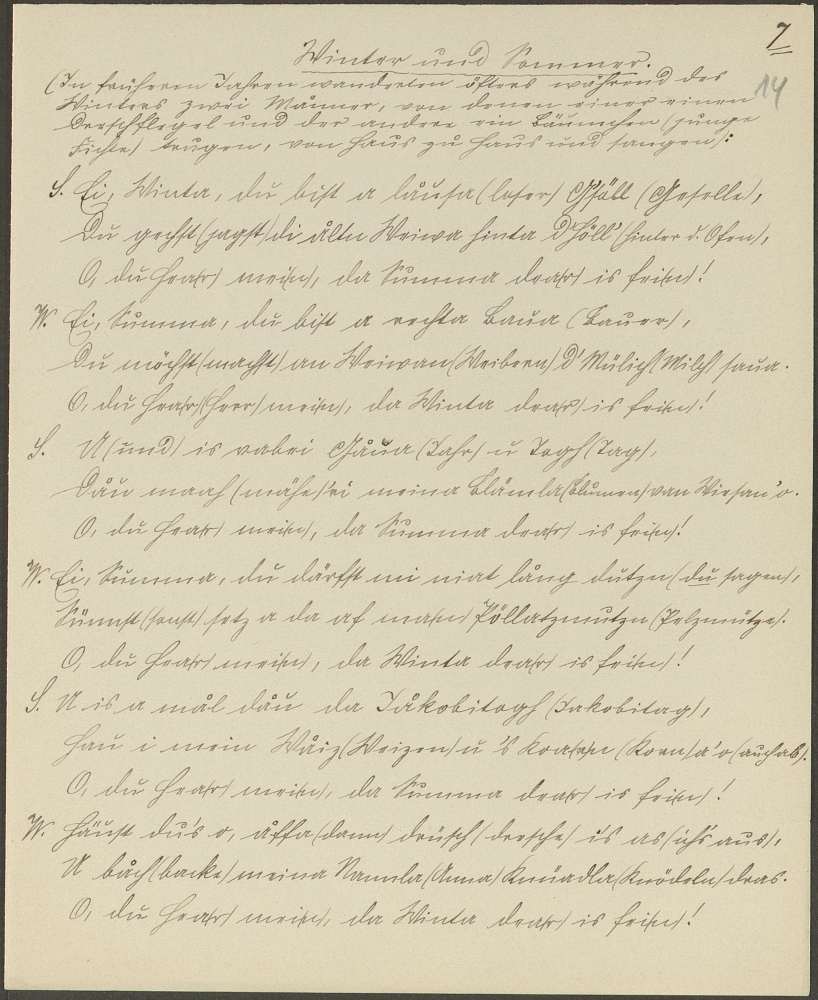 7
14
Winter und Sommer.
(In früheren Jahren wanderten öfters während des
Winters zwei Männer, von denen einer einen
Dreschflegel und der andere ein Bäumchen (junge
Fichte) trugen, von Haus zu Haus und sangen):
S. Ei, Winta, du bist a låusa (loser) G'söll (Geselle),
Du gechst (jagst) di åltn Weiwa hinta d'Höll' (hinter d. Ofen),
O, du Hea(r) mei(n), da Summa dea(r) is fei(n)!
W. Ei, Summa, du bist a rechta Baua (Bauer),
Du möchst (machst) an Weiwan (Weibern) d' Mülich (Milch) saua.
O, du Hea(r) (Herr) mei(n), da Winta dea(r) is fei(n)!
S. U (und) is vabei Gåua (Jahr) u Togh (Tag),
Dåu maah (mähe) ei meina Blåmla (Blumen) van Wiesan' o.
O, du Hea(r) mei(n), da Summa dea(r) is fei(n)!
W. Ei, Summa, du därfst mi niat lång dutzn (du sagen),
Sünnst (sonst) setz a da af ma(n) Pöllatzmutzn (Pelzmütze).
O, du Hea(r) mei(n), da Winta dea(r) is fei(n)!
S. U is a mål dåu da Jåkobitogh (Jakobitag),
Hau i mein Wåiz (Weizen) u 's Koa(r)n (Korn) a' o (auch ab).
O, du Hea(r) mei(n), da Summa dea(r) is fei(n)!
W. Häust du's o, åffa (dann) drüsch (dresche) i's as (ich's aus),
U båch (backe) meina Nannla (Anna) Knüadla (Knödeln) dras.
O, du Hea(r) mei(n), da Winta dea(r) is fei(n)!